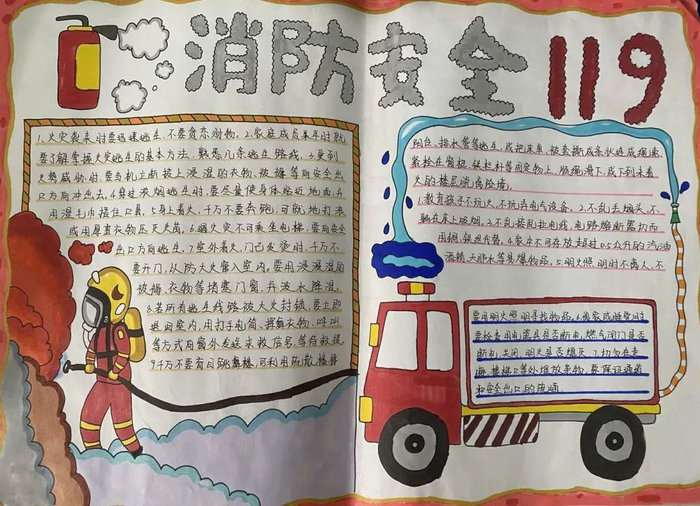 消防安全119
1.火灾袭来时要迅速逃生,不要贪恋财物。2.家庭成员平时就
要了解掌握火灾逃生的基本方法,熟悉几条逃生路线。3.受到
火势威胁时,要当机立断披上浸湿的衣物、被褥等向安全出
口方向冲出去。4.穿过浓烟逃生时,要尽量使身体贴近地面,并
用湿毛巾捂住口鼻。5.身上着火,千万不要奔跑,可就地打滚
或用厚重衣物压灭火苗。6.遇火灾不可乘坐电梯,要向安全
出口方向逃生。7.室外着火,门已发烫时,千万不
要开门,以防大火窜入室内,要用浸湿的
被褥、衣物等堵塞门窗,并泼水降温。
8.若所有逃生线路被大火封锁,要立即
退回室内,用打手电筒、挥舞衣物、呼叫
等方式向窗外发送求救信号,等待救援。
9千万不要盲目跳楼,可利用疏散楼梯
阳台、排水管等逃生,或把床单、被套撕成条状连成绳索,
紧拴在窗框、铁栏杆等固定物上,顺绳滑下,或下到未着
火的楼层脱离险境。
1.教育孩子不玩火,不玩弄电气设备。2.不乱丢烟头,不
躺在床上吸烟。3.不乱接乱拉电线,电路熔断器切勿
用铜、铁丝代替。4.家中不可存放超过0.5公升的汽油
酒精、天那水等易燃物品。5.明火照明时不离人,不
要用明火照明寻找物品。6.离家或睡觉时
要检查用电器具是否断电,燃气阀门是否
断电,关闭,明火是否熄灭。7.切勿在走
廊、楼梯口等处堆放杂物,要保证通道
和安全出口的畅通。